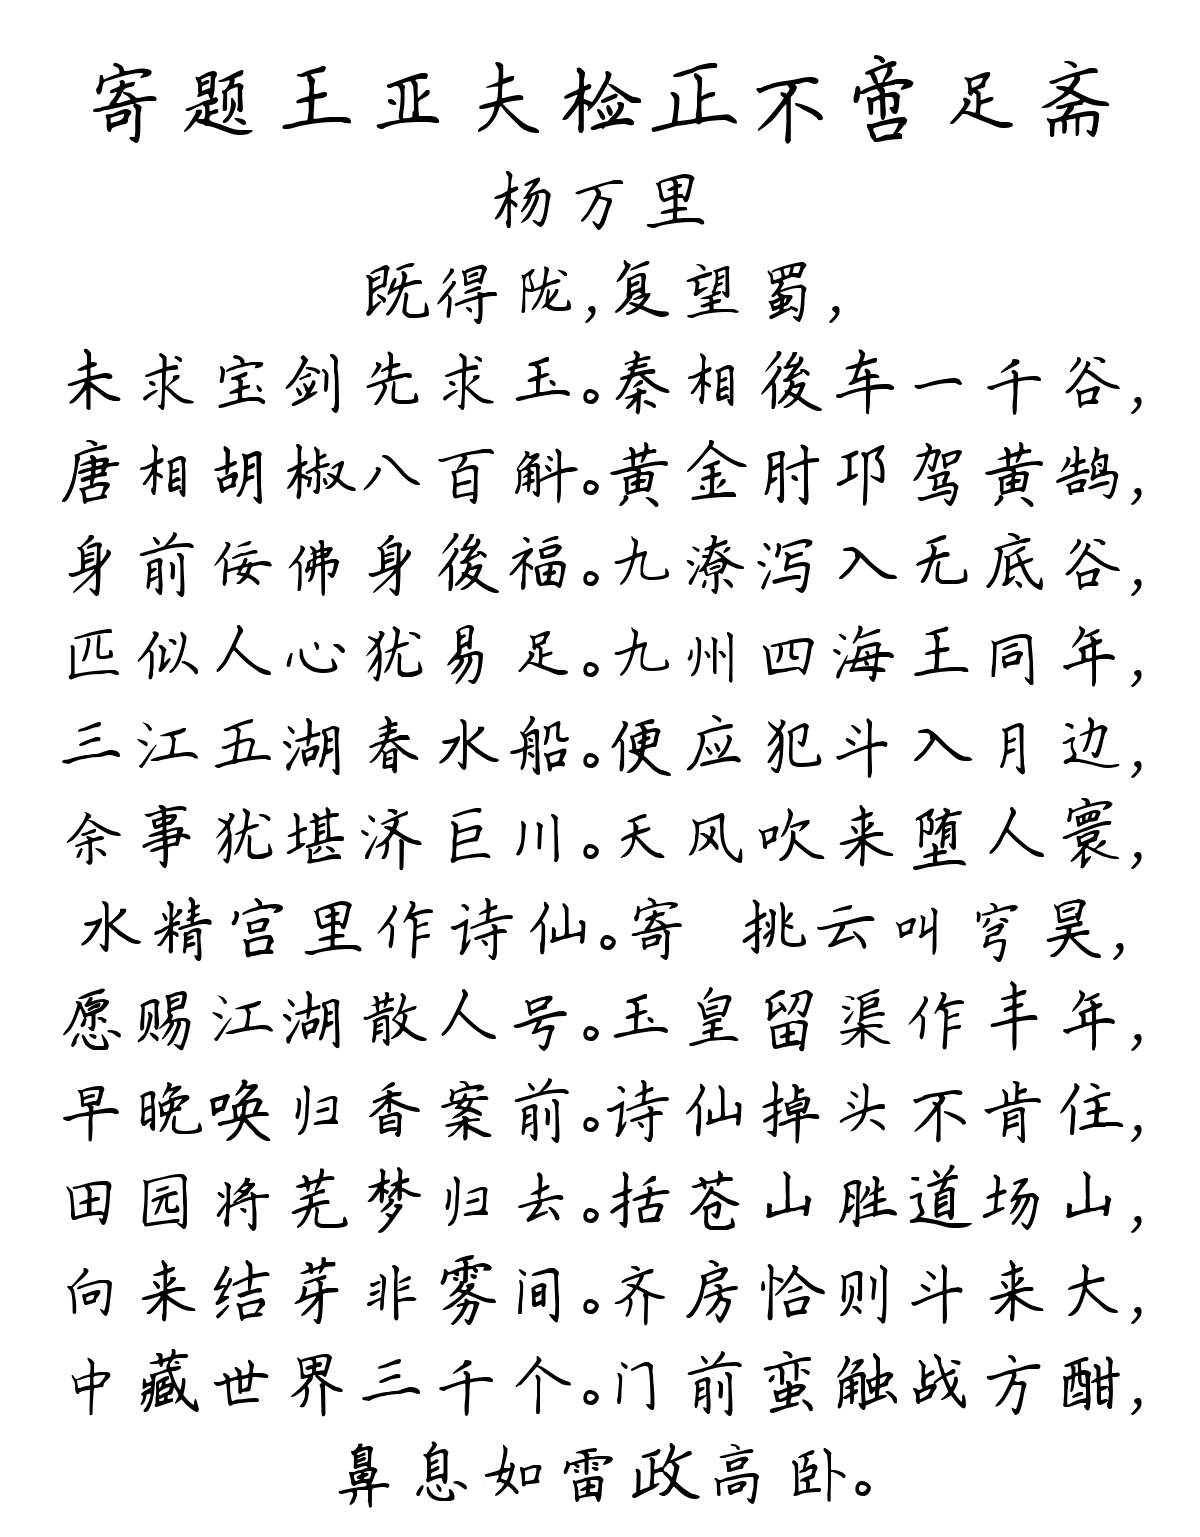 寄题王亚夫检正不啻足斋
杨万里
既得陇,复望蜀,
未求宝剑先求玉。秦相後车一千谷,
唐相胡椒八百斛。黄金肘邛驾黄鹄,
身前佞佛身後福。九潦泻入无底谷,
匹似人心犹易足。九州四海王同年,
三江五湖春水船。便应犯斗入月边,
余事犹堪济巨川。天风吹来堕人寰,
水精宫里作诗仙。寄 挑云叫穹昊,
愿赐江湖散人号。玉皇留渠作丰年,
早晚唤归香案前。诗仙掉头不肯住,
田园将芜梦归去。括苍山胜道场山,
向来结芽非雾间。齐房恰则斗来大,
中藏世界三千个。门前蛮触战方酣,
鼻息如雷政高卧。